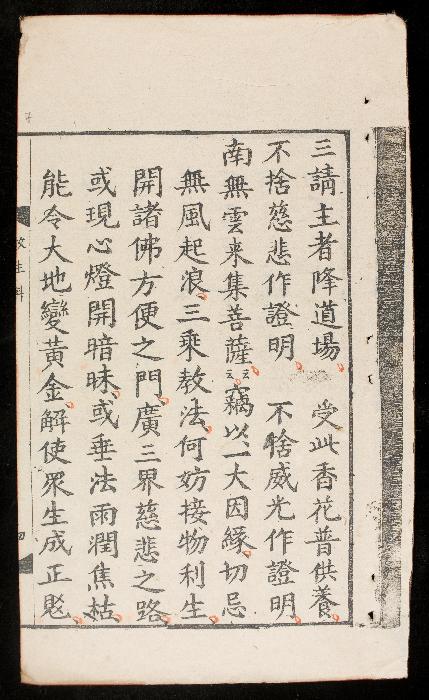 三請主者降道場　受此香花普供養
不捨慈悲作證明　不捨威光作證明
南無雲来集菩薩三云竊以一大因緣切忌
無風起浪三乘教法何妨接物利生
開諸佛方便之門廣三界慈悲之路
或現心燈開暗昧或垂法雨潤焦枯
能令大地變黃金解使眾生成正覺
放生科
四